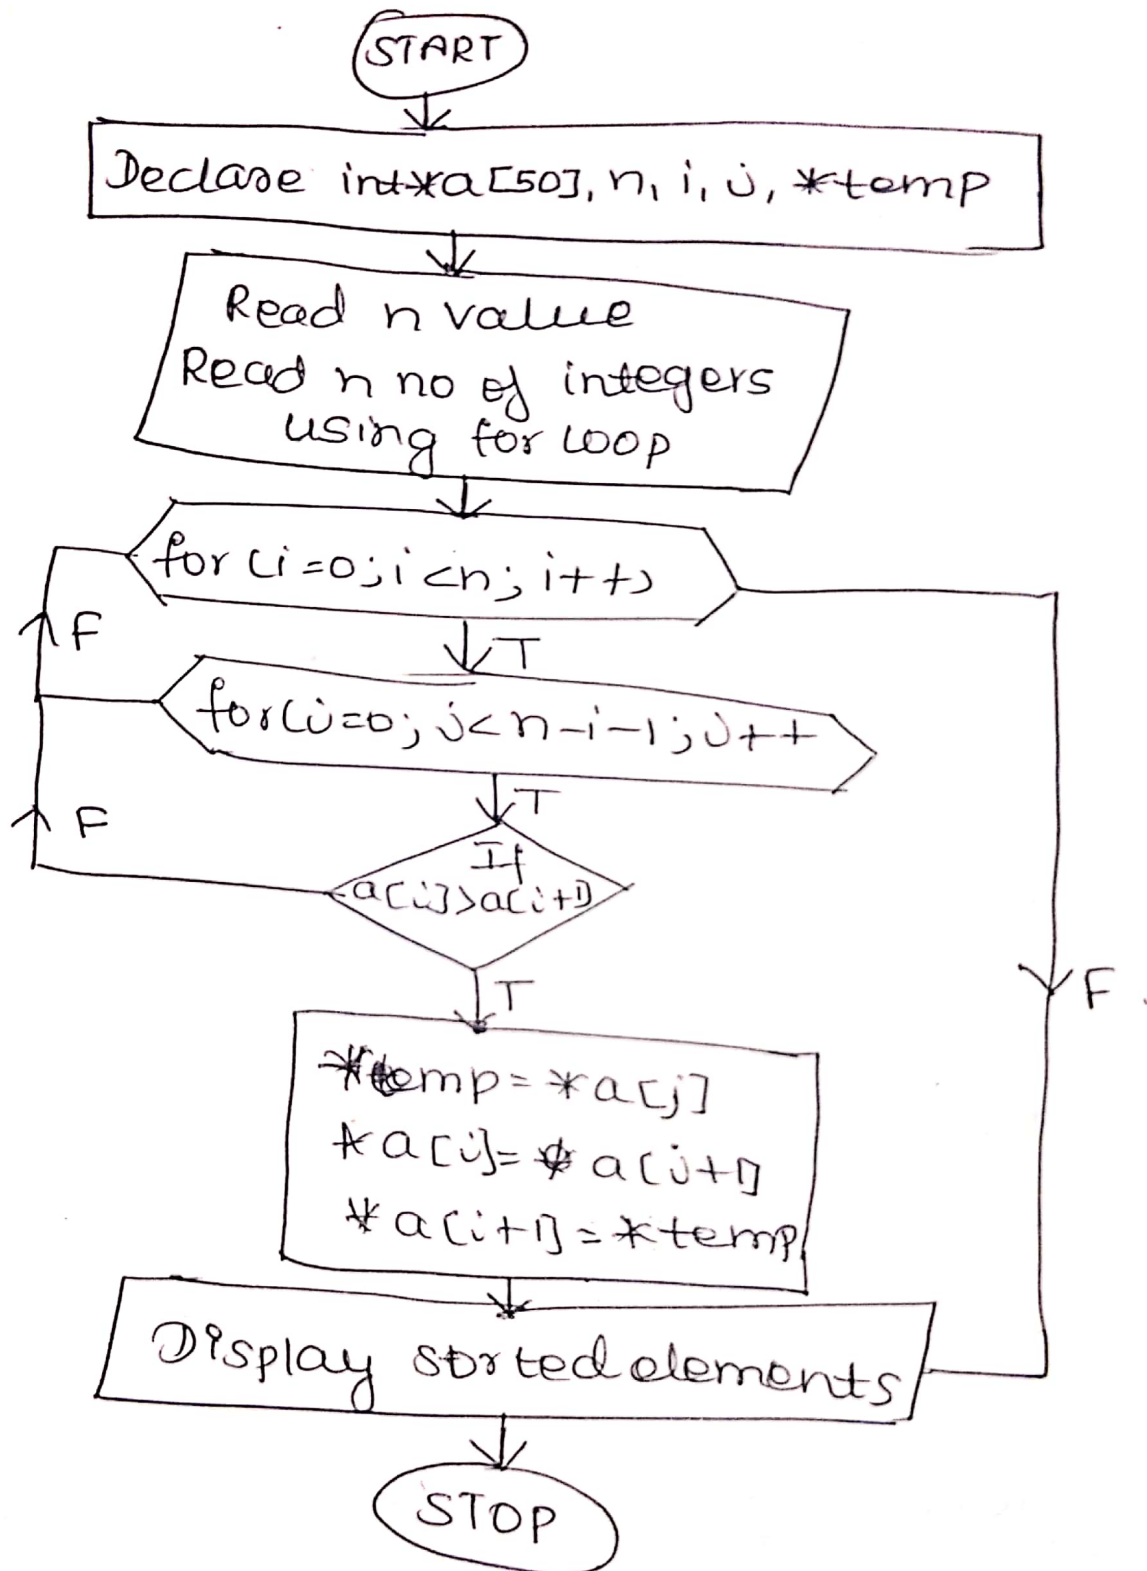 START
Declare int*a[50], n, i, j, *temp
Read n value
Read n no of integers
using for loop
for (i=0; i<n; i++)
F
T
for(j=0; j<n-i-1; j++
T
F
If
a[j]>a[i+1]
T
F
*temp = *a[j]
*a[j]= * a[j+1]
*a[i+1] = *temp
Display sorted elements
STOP